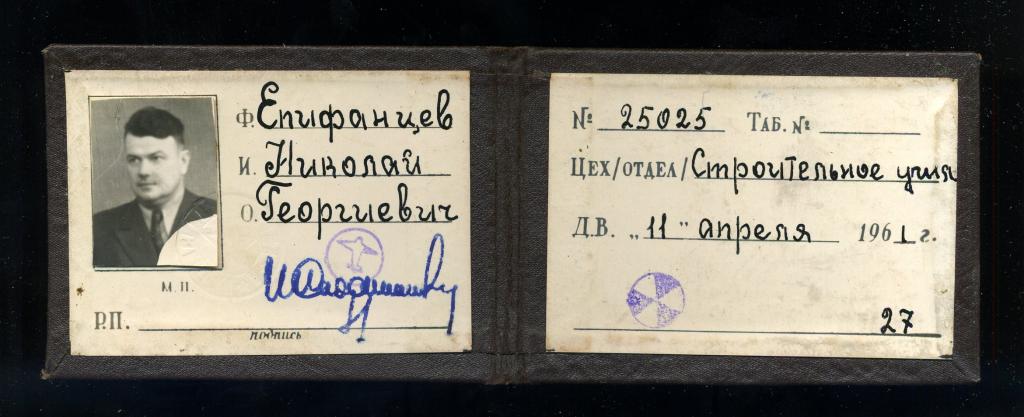 Ф. Епифанцев
И. Николай
О. Георгиевич
М.П.
Р.П.
подпись
№ 25025 Таб. №
Цех/отдел/ Строительное
Д.В. „11" апреля 1961 г.
27